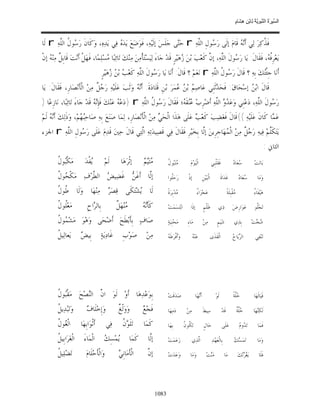 السيرة النبوية لابن هشام
فَذُكِرَ لِي أَنَّهُ قَامَ إلَى رَسُولِ اللَّهِ ٣ حَتَّى جَلَسَ إلَيْهِ، فَوَضَعَ يَدَهُ فِي يَدِهِ، وَكَانَ رَسُولُ اللَّهِ ٣ لَا
يَعْرِفُهُ، فَقَالَ: يَا رَسُولَ اللَّهِ، إنَّ كَعْبَ بْنَ زُهَيْرٍ قَدْ جَاءَ لِيَسْتَأْمِنَ مِنْكَ تَائِبًا مُسْلِمًا، فَهَلْ أَنْتَ قَابِلٌ مِنْهُ إنْ
أَنَا جِئْتُكَ بِهِ ؟ قَالَ رَسُولُ اللَّهِ ٣ نَعَمْ ؟ قَالَ: أَنَا يَا رَسُولَ اللَّهِ كَعْبُ بْنُ زُهَيْرٍ.
قَالَ ابْنُ إسْحَاقَ: فَحَدَّثَنِي عَاصِمُ بْنُ عُمَرَ بْنِ قَتَادَةَ: أَنَّهُ وَثَبَ عَلَيْهِ رَجُلٌ مِنْ الْأَنْصَارِ، فَقَالَ: يَا
رَسُولَ اللَّهِ، دَعْنِي وَعَدُوَّ اللَّهِ أَضْرِبْ عُنُقَهُ، فَقَالَ رَسُولُ اللَّهِ ٣ (دَعْهُ عَنْكَ فَإِنَّهُ قَدْ جَاءَ تَائِبًا، نَازِعًا (
عَمَّا كَانَ عَلَيْهِ) (قَالَ فَغَضِبَ كَعْبٌ عَلَى هَذَا الْحَيِّ مِنْ الْأَنْصَارِ، لِمَا صَنَعَ بِهِ صَاحِبُهُمْ، وَذَلِكَ أَنَّهُ لَمْ
يَتَكَلَّمْ فِيهِ رَجُلٌ مِنْ الْمُهَاجِرِينَ إلَّا بِخَيْرٍ فَقَالَ فِي قَصِيدَتِهِ الَّتِي قَالَ حِينَ قَدِمَ عَلَى رَسُولِ اللَّهِ ٣ الجزء
الثاني
بَانَتْ سُعَادُ فَقَلْبِي الْيَوْمَ مَتْبُولُ مُتَيَّمٌ إثْرَهَا لَمْ يُفْدَ مَكْبُولُ
وَمَا سُعَادُ غَدَاةَ الْبَيْنِ إذْ رَحَلُوا إلَّا أَغَنُّ غَضِيضُ الطَّرْفِ مَكْحُولُ
هَيْفَاءُ مُقْبِلَةً عَجْزَاءُ مُدْبِرَةً لَا يُشْتَكَى قِصَرٌ مِنْهَا وَلَا طُولُ
تَجْلُو عَوَارِضَ ذِي ظَلْمٍ إذَا ابْتَسَمَتْ كَأَنَّهُ مُنْهَلٌ بِالرَّاحِ مَعْلُولُ
شُجَّتْ بِذِي شَبَمٍ مِنْ مَاءِ مَحْنِيَةٍ صَافٍ بِأَبْطَحَ أَضْحَى وَهُوَ مَشْمُولُ
تَنْفِي الرِّيَاحُ الْقَذَى عَنْهُ وَأَفْرَطَهُ مِنْ صَوْبِ غَادِيَةٍ بِيضٌ يَعَالِيلُ
فَيَا لَهَا خُلَّةً لَوْ أَنَّهَا صَدَقَتْ بِوَعْدِهَا أَوْ لَوَ انَّ النُّصْحَ مَقْبُولُ
لَكِنَّهَا خُلَّةٌ قَدْ سِيطَ مِنْ دَمِهَا فَجْعٌ وَوَلْعٌ وَإِخْلَافٌ وَتَبْدِيلُ
فَمَا تَدُومُ عَلَى حَالٍ تَكُونُ بِهَا كَمَا تَلَوَّنُ فِي أَثْوَابِهَا الْغُولُ
وَمَا تَمَسَّكُ بِالْعَهْدِ الَّذِي زَعَمَتْ إلَّا كَمَا يُمْسِكُ الْمَاءَ الْغَرَابِيلُ
فَلَا يَغُرَّنْكَ مَا مَنَّتْ وَمَا وَعَدَتْ إنَّ الْأَمَانِيَّ وَالْأَحْلَامَ تَضْلِيلُ
1083